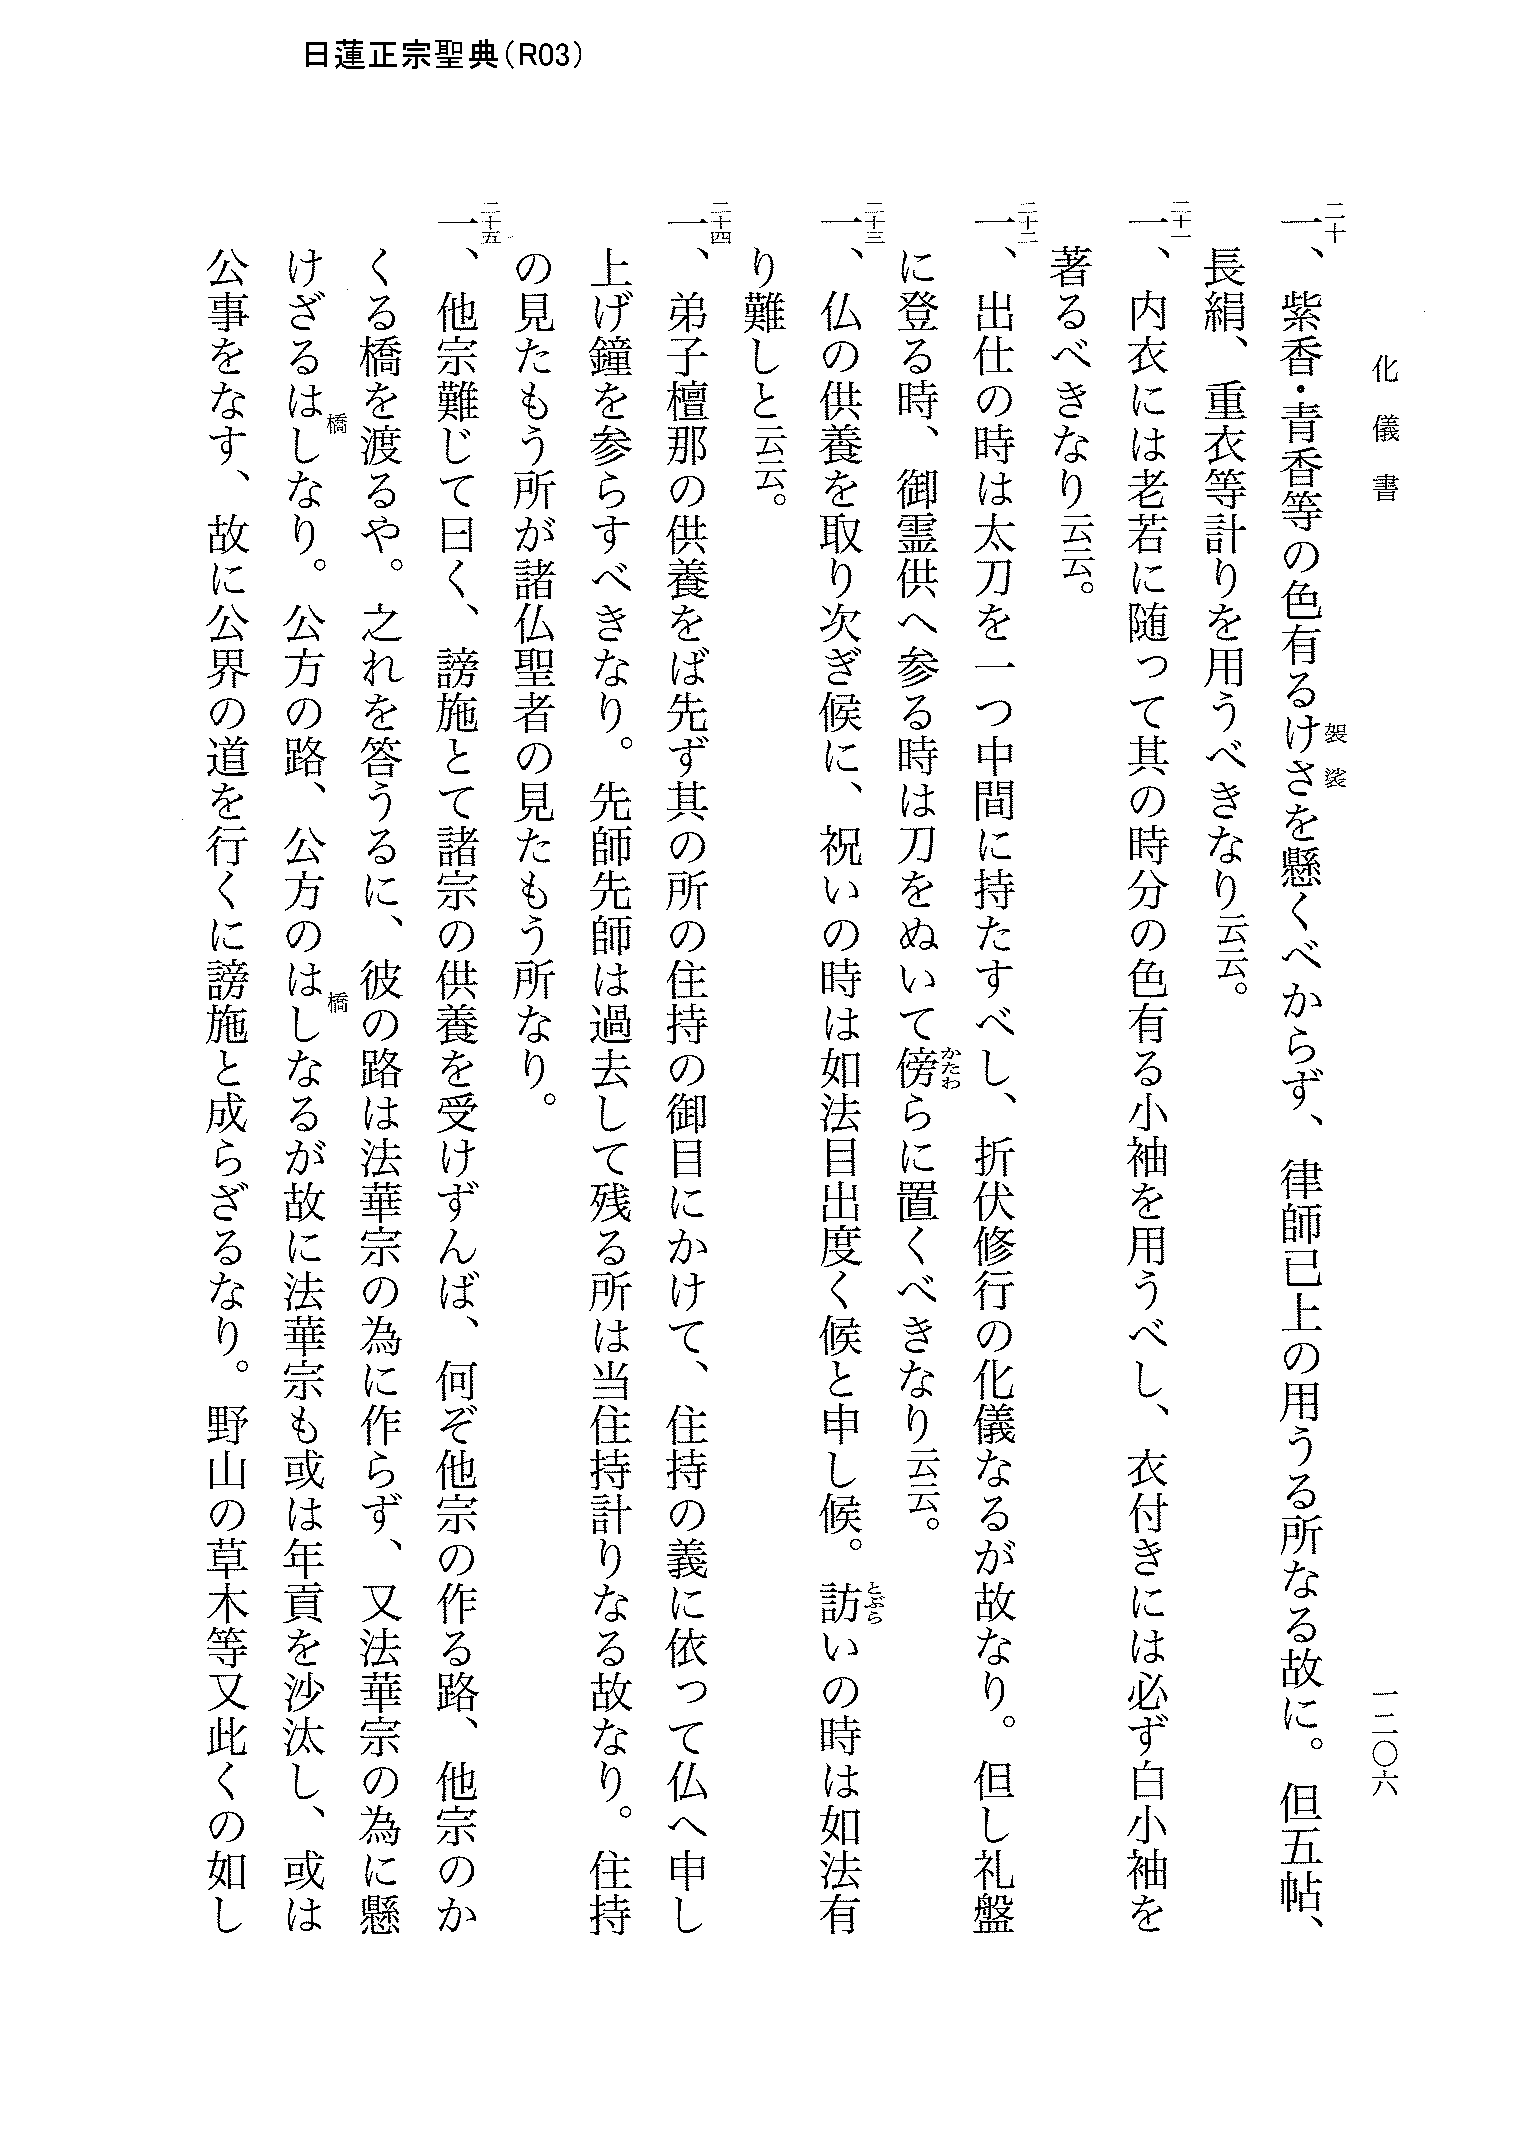 日蓮正宗聖典（R03）
化儀書
一二〇六
二十
一、紫香・青香等の色有るけさを懸くべからず、律師已上の用うる所なる故に。但五帖、
袈裟
長絹、重衣等計りを用うべきなり云云。
二十一
一、内衣には老若に随って其の時分の色有る小袖を用うべし、衣付きには必ず白小袖を
著るべきなり云云。
二十二
一、出仕の時は太刀を一つ中間に持たすべし、折伏修行の化儀なるが故なり。但し礼盤
に登る時、御霊供へ参る時は刀をぬいて傍らに置くべきなり云云。
かたわ
二十三
一、仏の供養を取り次ぎ候に、祝いの時は如法目出度く候と申し候。訪いの時は如法有
とぶら
り難しと云云。
二十四
一、弟子檀那の供養をば先ず其の所の住持の御目にかけて、住持の義に依って仏へ申し
上げ鐘を参らすべきなり。先師先師は過去して残る所は当住持計りなる故なり。住持
の見たもう所が諸仏聖者の見たもう所なり。
二十五
一、他宗難じて曰く、謗施とて諸宗の供養を受けずんば、何ぞ他宗の作る路、他宗のか
くる橋を渡るや。之れを答うるに、彼の路は法華宗の為に作らず、又法華宗の為に懸
けざるはしなり。公方の路、公方のはしなるが故に法華宗も或は年貢を沙汰し、或は
橋
橋
公事をなす、故に公界の道を行くに謗施と成らざるなり。野山の草木等又此くの如し